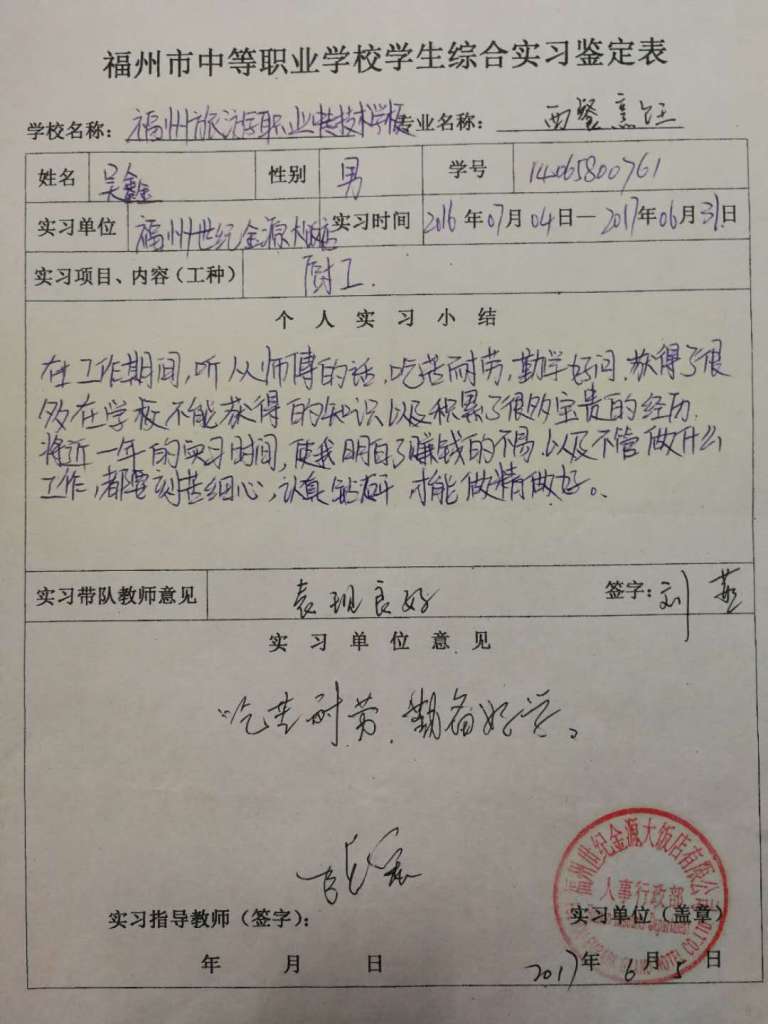 福州市中等职业学校学生综合实习鉴定表
学校名称: 福州旅游职业中专技术学校 专业名称: 西餐烹饪
姓名 吴鑫 性别 男 学号 14065800761
实习单位 福州世纪金源大饭店 实习时间 2016年07月04日—2017年06月31日
实习项目、内容(工种) 厨工.
个人实习小结
在工作期间,听从师傅的话,吃苦而劳,勤学好问.获得了很
多在学校不能获得的知识以及积累了很多宝贵的经历.
将近一年的实习时间,使我明白了赚钱的不易.以及不管做什么
工作,都要刻苦细心,认真钻研 才能做精做好。
实习带队教师意见 表现良好 签字: 刘燕
实习单位意见
吃苦耐劳、勤奋好学。
实习指导教师(签字):
福州世纪金源大饭店有限公司
人事行政部
实习单位(盖章)
年 月 日
2017年6月5日